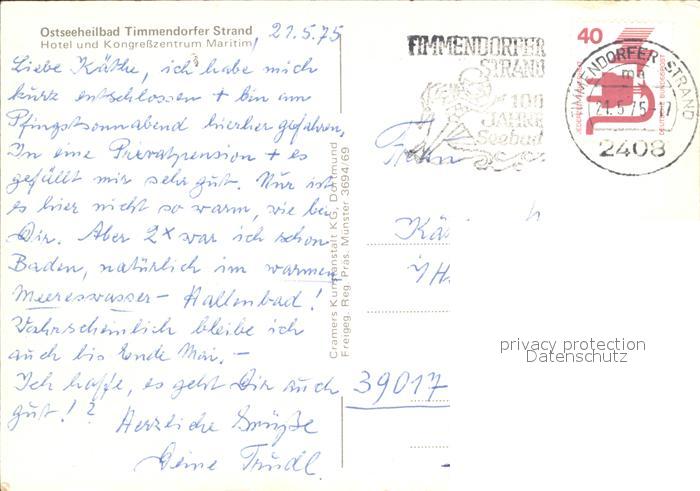 Ostseeheilbad Timmendorfer Strand
Hotel und Kongreßzentrum Maritim
, 21.5.75
Liebe Käthe, ich habe mich
kurz entschlossen + bin am
Pfingstsonnabend hierher gefahren,
In eine Privatpension + es
gefällt mir sehr gut. Nur ist
es hier nicht so warm, wie bei
Dir. Aber 2x war ich schon
Baden, natürlich im warmen
Meereswasser - Hallenbad!
Wahrscheinlich bleibe ich
auch bis Ende Mai. -
Ich hoffe, es geht Dir auch
gut!?
Herzliche Grüße
Deine Trudl.
Cramers Kunstanstalt KG, Dortmund
Freigeg. Reg. Präs. Münster 3694/69
TIMMENDORFER
STRAND
100
JAHRE
Seebad
40
DEUTSCHE BUNDESPOST
TIMMENDORFER STRAND
mh
21.5.75-17
2408
Frau
Kä
39017
privacy protection
Datenschutz